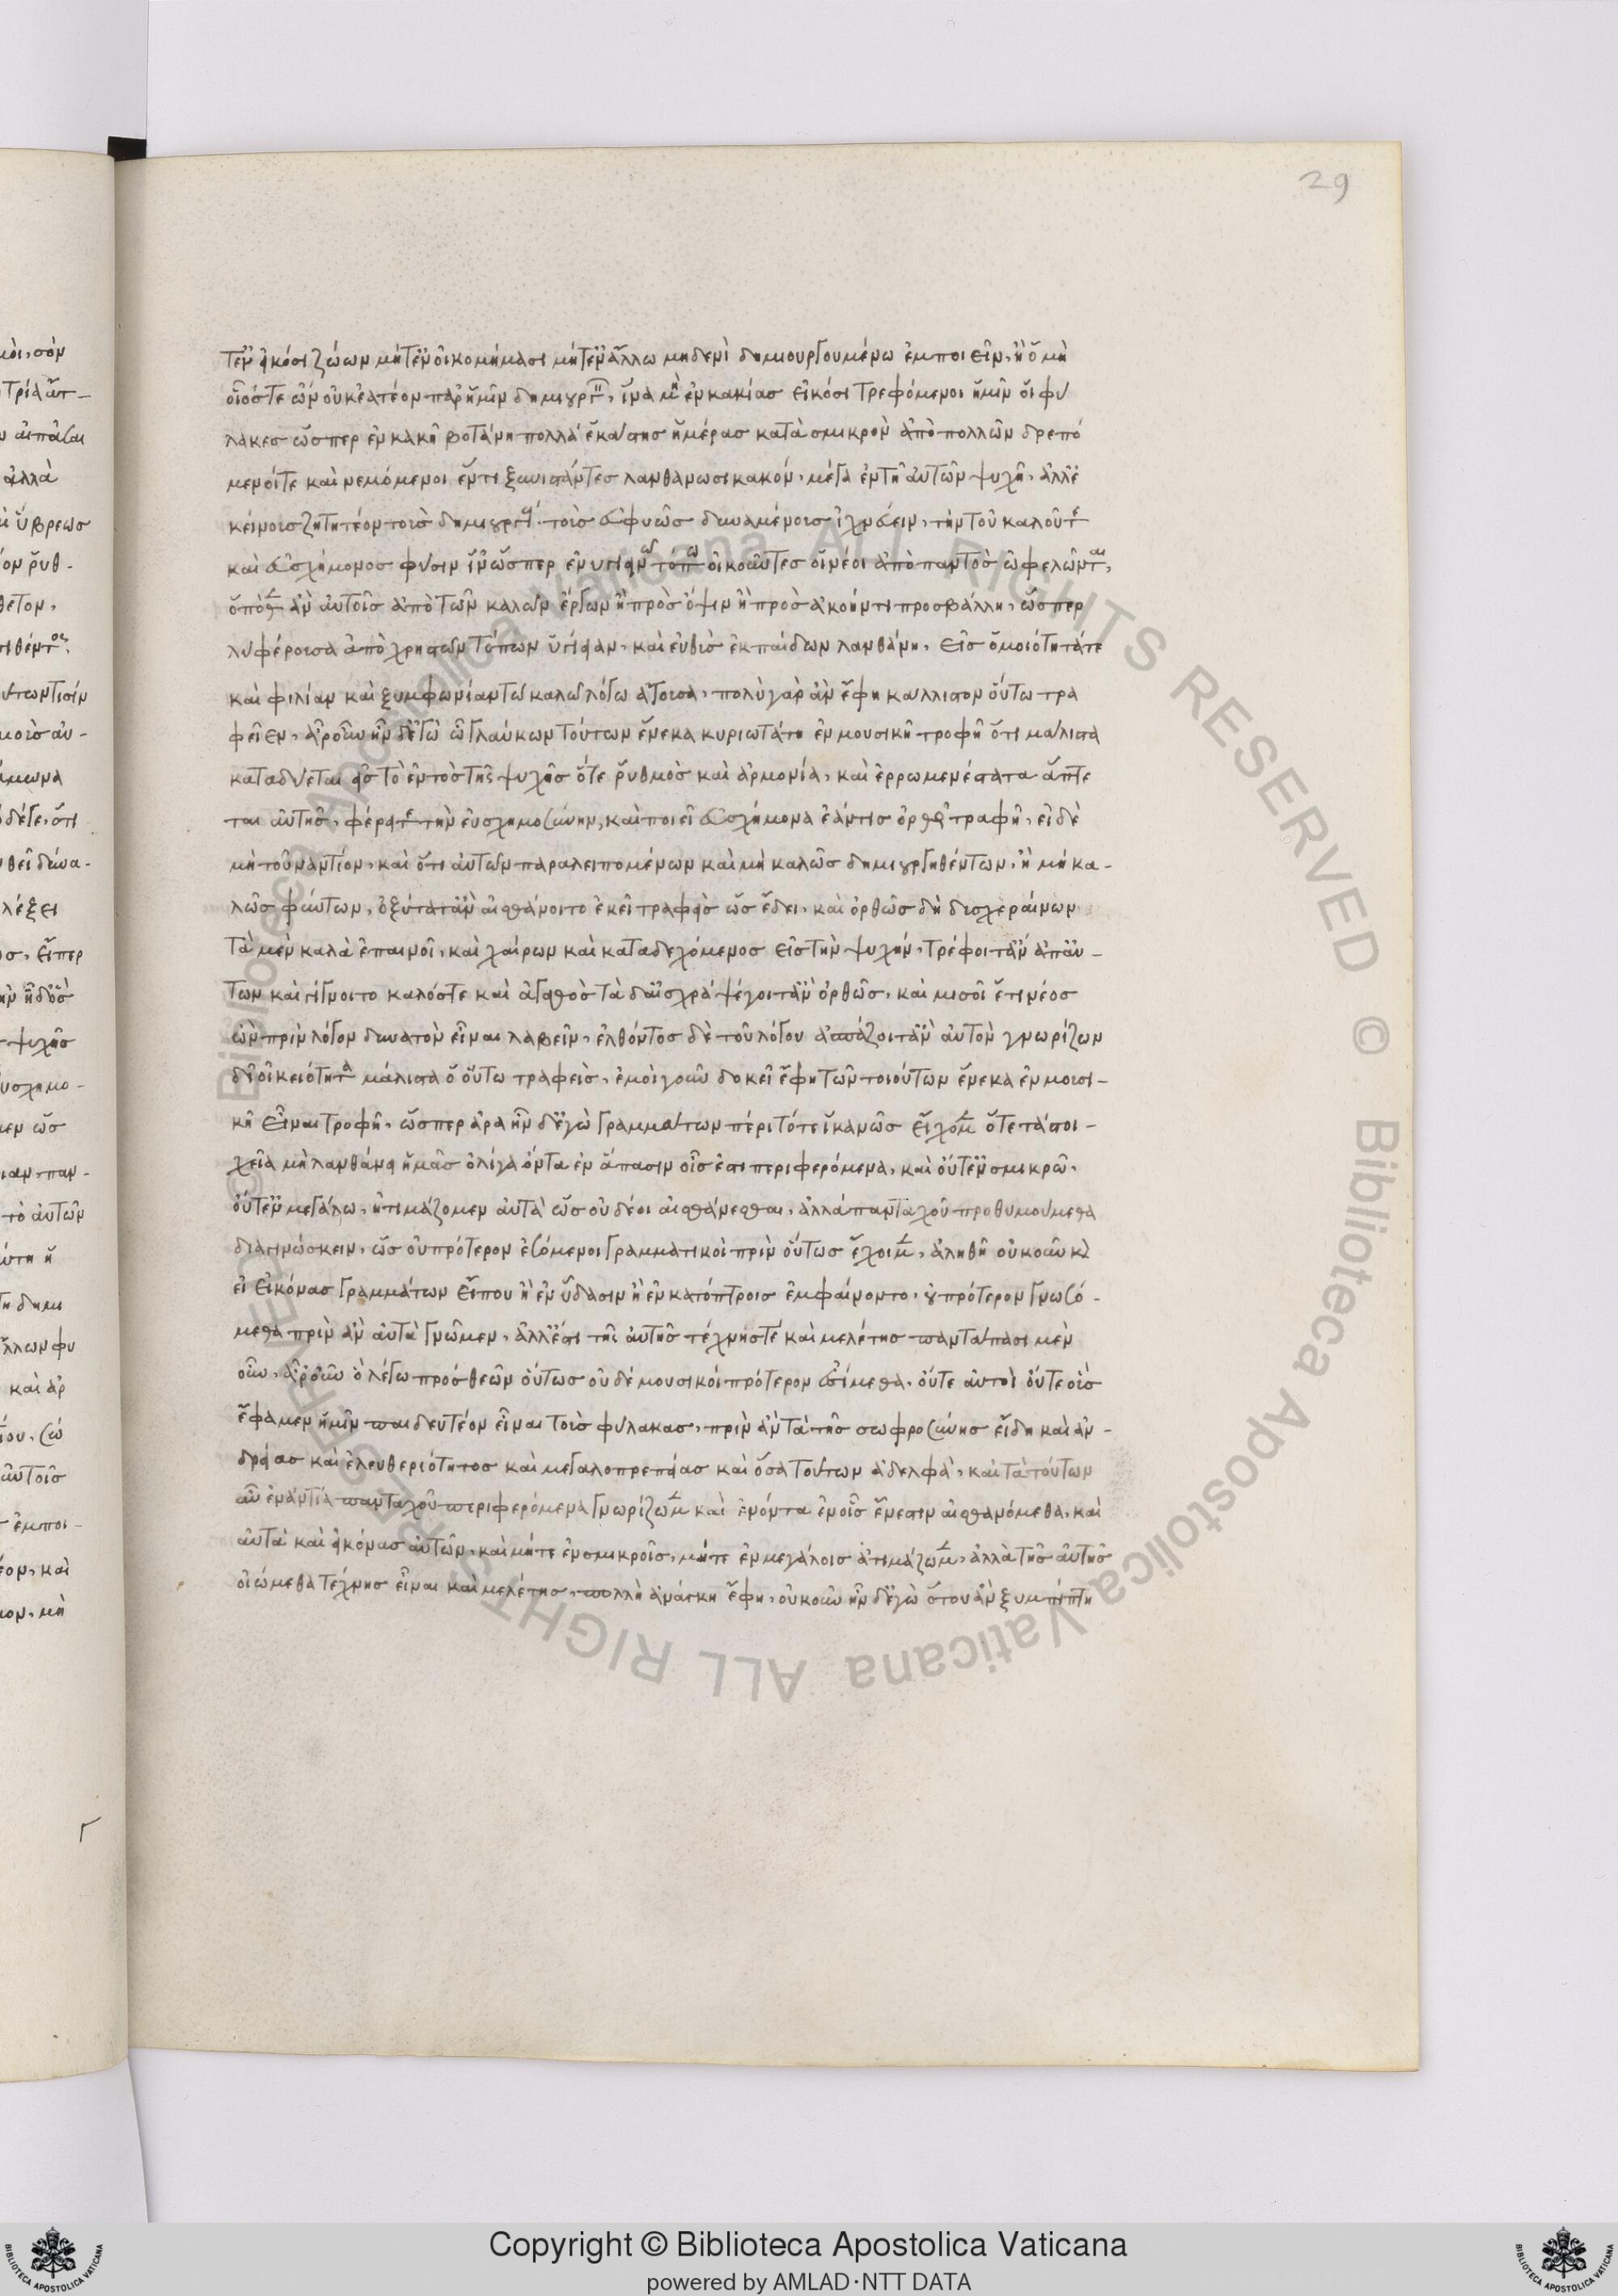 29
τε ἐν εἰκόσι ζώων μήτε ἐν οἰκοδομήμασι μήτε ἐν ἄλλω μηδενὶ δημιουργουμένω ἐμποιεῖν, ἢ ὁ μὴ
οἷός τε ὢν οὐκ ἐατέον παρ' ἡμῖν δημιουργεῖν, ἵνα μὴ ἐν κακίας εἰκόσι τρεφόμενοι ἡμῖν οἱ φύ
λακες ὥσπερ ἐν κακῇ βοτάνη πολλὰ ἑκάστης ἡμέρας κατὰ σμικρὸν ἀπὸ πολλῶν δρεπό
μενοί τε καὶ νεμόμενοι ἕν τι ξυνιστάντες λανθάνωσι κακόν, μέγα ἐν τῇ αὐτῶν ψυχῇ, ἀλλ' ἐ
κείνους ζητητέον τοὺς δημιουργοὺς τοὺς εὐφυῶς δυναμένους ἰχνεύειν, τὴν τοῦ καλοῦ τε
καὶ εὐσχήμονος φύσιν ἵν' ὥσπερ ἐν ὑγιεινῷ τόπω οἰκοῦντες οἱ νέοι ἀπὸ παντὸς ὠφελῶνται,
ὁπόθεν ἂν αὐτοῖς ἀπὸ τῶν καλῶν ἔργων ἢ πρὸς ὄψιν ἢ πρὸς ἀκοήν τι προσβάλλη, ὥσπερ
λὺ φέρουσα ἀπὸ χρηστῶν τόπων ὑγίειαν, καὶ εὐθὺς ἐκ παίδων λανθάνη, εἰς ὁμοιότητά τε
καὶ φιλίαν καὶ ξυμφωνίαν τῶ καλῶ λόγω ἄγουσα, πολὺ γὰρ ἂν ἔφη κάλλιστον οὕτω τρα
φεῖεν, ἆρ' οὖν ἦν δ' ἐγὼ ὦ Γλαύκων τούτων ἕνεκα κυριωτάτη ἐν μουσικῇ τροφὴ ὅτι μάλιστα
καταδύεται εἰς τὸ ἐντὸς τῆς ψυχῆς ὅ τε ῥυθμὸς καὶ ἁρμονία, καὶ ἐρρωμενέστατα ἅπτε
ται αὐτῆς, φέροντε τὴν εὐσχημοσύνην, καὶ ποιεῖ εὐσχήμονα ἐάν τις ὀρθῶς τραφῇ, εἰ δὲ
μὴ τοὐναντίον, καὶ ὅτι αὐτῶν παραλειπομένων καὶ μὴ καλῶς δημιουργηθέντων, ἢ μὴ κα-
λῶς φύντων, ὀξύτατ' ἂν αἰσθάνοιτο ὁ ἐκεῖ τραφεὶς ὡς ἔδει, καὶ ὀρθῶς δὴ δυσχεραίνων
τὰ μὲν καλὰ ἐπαινοῖ, καὶ χαίρων καὶ καταδεχόμενος εἰς τὴν ψυχήν, τρέφοιτ' ἂν ἀπ' αὐ-
τῶν καὶ γίγνοιτο καλός τε καὶ ἀγαθὸς τὰ δ' αἰσχρὰ ψέγοιτ' ἂν ὀρθῶς, καὶ μισοῖ ἔτι νέος
ὢν πρὶν λόγον δυνατὸν εἶναι λαβεῖν, ἐλθόντος δὲ τοῦ λόγου ἀσπάζοιτ' ἂν αὐτὸν γνωρίζων
δι' οἰκειότητα μάλιστα ὁ οὕτω τραφεὶς, ἐμοὶ γοῦν δοκεῖ ἔφη τῶν τοιούτων ἕνεκα ἐν μουσι-
κῇ εἶναι τροφή, ὥσπερ ἄρα ἦν δ' ἐγὼ γραμμάτων πέρι τότε ἱκανῶς εἴχομεν ὅτε τὰ στοι-
χεῖα μὴ λανθάνοι ἡμᾶς ὀλίγα ὄντα ἐν ἅπασιν οἷς ἐστι περιφερόμενα, καὶ οὔτ' ἐν σμικρῶ,
οὔτ' ἐν μεγάλω, ἠτιμάζομεν αὐτὰ ὡς οὐ δέοι αἰσθάνεσθαι, ἀλλὰ πανταχοῦ προθυμούμεθα
διαγινώσκειν, ὡς οὐ πρότερον ἐσόμενοι γραμματικοὶ πρὶν οὕτως ἔχοιμεν, ἀληθῆ οὐκοῦν καὶ
εἰ εἰκόνας γραμμάτων εἴ που ἢ ἐν ὕδασιν ἢ ἐν κατόπτροις ἐμφαίνοντο, οὐ πρότερον γνωσό-
μεθα πρὶν ἂν αὐτὰ γνῶμεν, ἀλλ' ἔστι τῆς αὐτῆς τέχνης τε καὶ μελέτης παντάπασι μὲν
οὖν, ἆρ' οὖν ὃ λέγω πρὸς θεῶν οὕτως οὐδὲ μουσικοὶ πρότερον ἐσόμεθα, οὔτε αὐτοὶ οὔτε οὓς
ἔφαμεν ἡμῖν παιδευτέον εἶναι τοὺς φύλακας, πρὶν ἂν τὰ τῆς σωφροσύνης εἴδη καὶ ἀν-
δρείας καὶ ἐλευθεριότητος καὶ μεγαλοπρεπείας καὶ ὅσα τούτων ἀδελφὰ, καὶ τὰ τούτων
αὖ ἐναντία πανταχοῦ περιφερόμενα γνωρίζωμεν καὶ ἐνόντα ἐν οἷς ἔνεστιν αἰσθανόμεθα, καὶ
αὐτὰ καὶ εἰκόνας αὐτῶν, καὶ μήτε ἐν σμικροῖς, μήτε ἐν μεγάλοις ἀτιμάζωμεν, ἀλλὰ τῆς αὐτῆς
οἰώμεθα τέχνης εἶναι καὶ μελέτης, πολλὴ ἀνάγκη ἔφη, οὐκοῦν ἦν δ' ἐγὼ ὅτου ἂν ξυμπίπτη
Copyright © Biblioteca Apostolica Vaticana
powered by AMLAD·NTT DATA